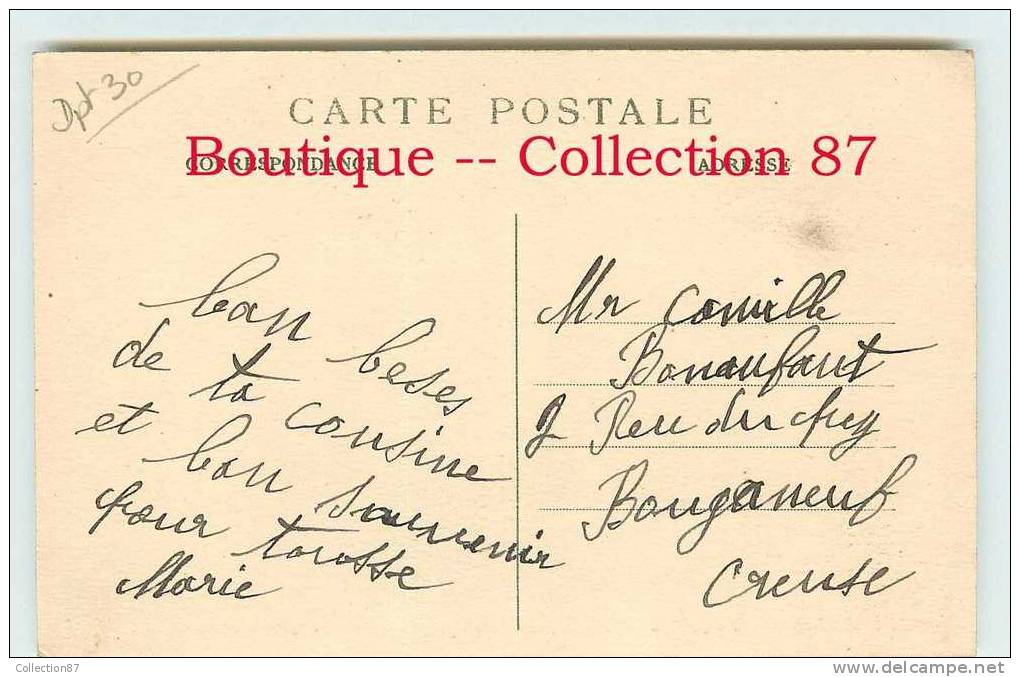 Dpt 30
CARTE POSTALE
Boutique -- Collection 87
CORRESPONDANCE
ADRESSE
bon beses
de ta cousine
et bon souvenir
pour tousse
Marie
Mr Camille
Bonnaufant
2 Reu du
Bouganeuf
Creuse
Collection87
www.delcampe.net